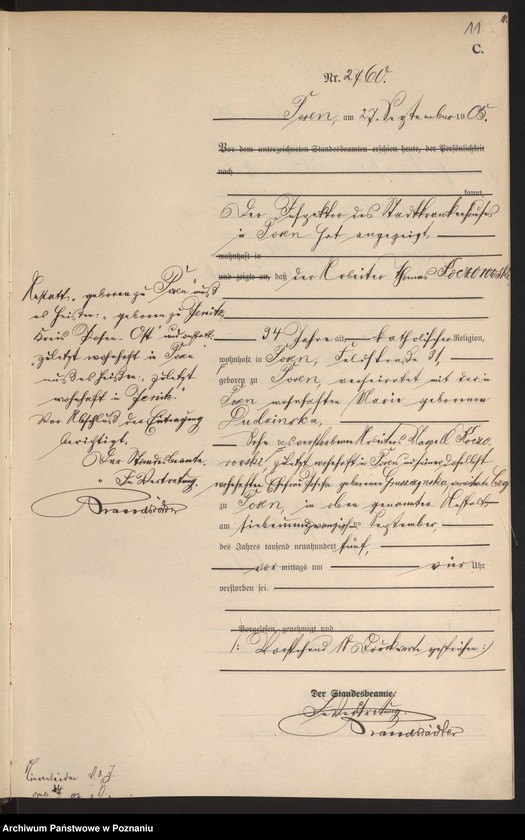 11
C.
Nr. 2460.
Posen, am 27. September 1905.
Vor dem unterzeichneten Standesbeamten erschien heute, der Persönlichkeit
nach
kannt,
Der Inspektor des Stadtkrankenhauses
in Posen hat angezeigt,
wohnhaft in
und zeigte an, daß der Arbeiter Thomas
34 Jahre alt, katholischer Religion,
wohnhaft in Posen, Feldstraße 31,
geboren zu Posen, verheirathet mit der in
Posen wohnhaften Marie geborenen
Sohn des verstorbenen Arbeiters
zuletzt wohnhaft in Posen und seiner daselbst
wohnhaften Ehefrau geborenen
zu Posen, in oben genannter Anstalt
am siebenundzwanzigsten September,
des Jahres tausend neunhundert fünf,
vor mittags um vier Uhr
verstorben sei.
Vorgelesen, genehmigt und
/: Vorstehend 18 Druckworte gestrichen :/
Der Standesbeamte.
In Vertretung.
Brandstädter
Anstatt „geboren zu Posen" muß
es heißen: „geboren zu Jersitz,
Kreis Posen-Ost" und anstatt
zuletzt wohnhaft in Posen
muß es heißen, „zuletzt
wohnhaft in Jersitz."
Vor Abschluß der Eintragung
berichtigt.
Der Standesbeamte.
In Vertretung.
Brandstädter
Archiwum Państwowe w Poznaniu